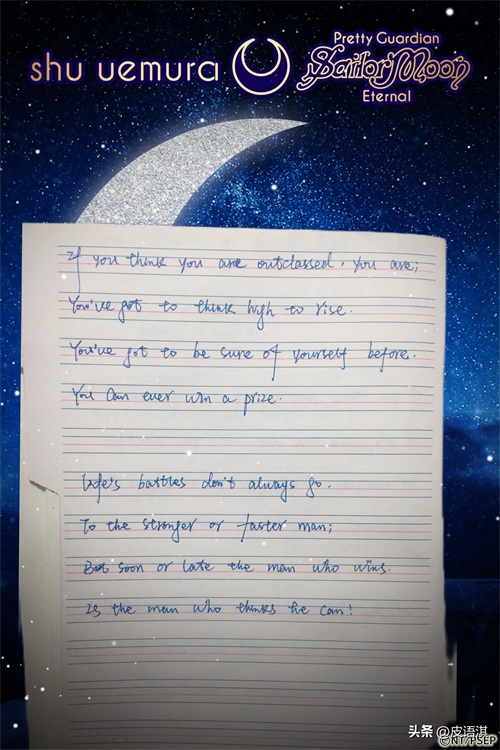 shu uemura
Pretty Guardian
Sailor Moon
Eternal
If you think you are outclassed, you are;
You've got to think high to rise.
You've got to be sure of yourself before.
You can ever win a prize.
Life's battles don't always go.
To the stronger or faster man;
But soon or late the man who wins.
Is the man who thinks he can!
头条 @皮语淇
©NT/PSEP